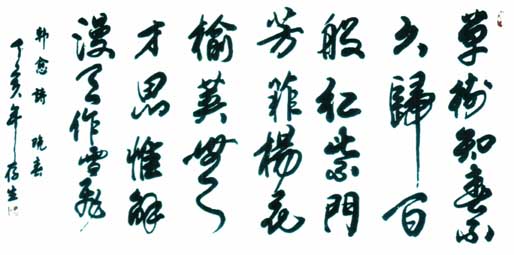 草樹知春不
久歸百
般红紫鬥
芳菲楊花
榆荚無
才思惟解
漫天作雪飛
韩愈詩 晚春
丁亥年